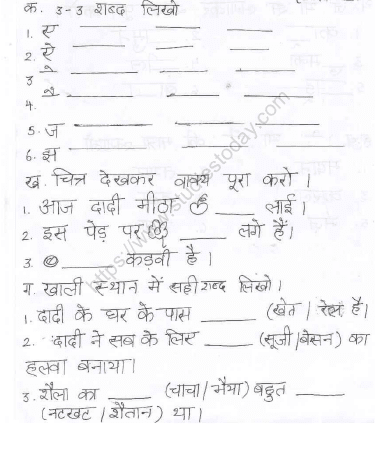 क. ३-३ शब्द लिखो
1. ए ____ ____ ____
2. ऐ ____ ____ ____
3 े ____ ____ ____
4. ै ____ ____ ____
5. ज ____ ____
6. झ ____ ____
ख. चित्र देखकर वाक्य पूरा करो।
1. आज दादी मीठा ____ लाई।
2. इस पेड़ पर ____ लगे हैं।
3. ____ कड़वी है।
ग. खाली स्थान में सही शब्द लिखो।
1. दादी के घर के पास ____ (खेत / रेल है।
2. दादी ने सब के लिए ____ (सूजी/बेसन) का
हलवा बनाया।
3. शैला का ____ (चाचा/भैया) बहुत ____
(नटखट / शैतान) था।
https://www.studiestoday.com